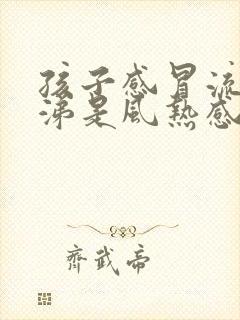 孩子感冒流
涕是风热感
齐武帝